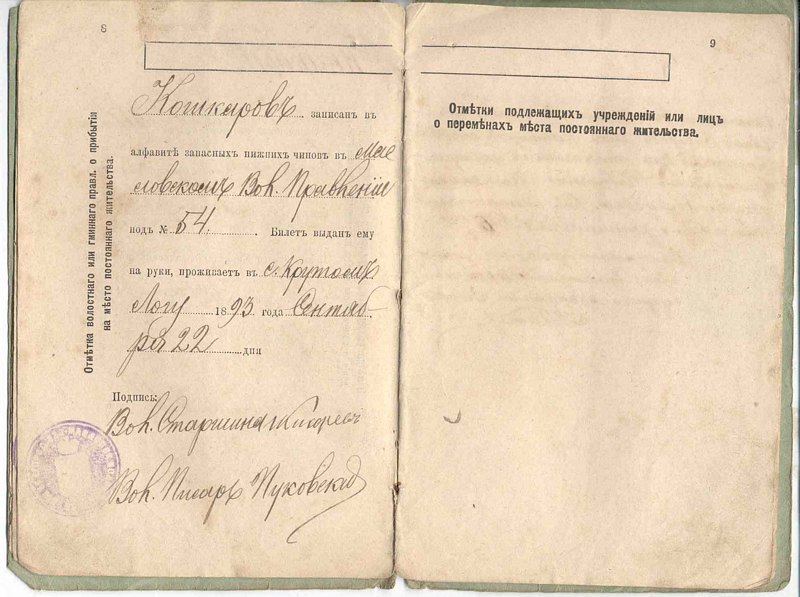 8
Отмѣтка волостнаго или гминнаго правл. о прибытіи
на мѣсто постояннаго жительства.
Кошкаровъ записан въ
алфавитѣ запасныхъ нижнихъ чиновъ въ Мас
ловскомъ Вол. Правленіи
подъ № 54. Билетъ выданъ ему
на руки, проживаетъ въ с. Крутомъ
Логу 1893 года Сентяб-
ря 22 дня
Подпись:
Вол. Старшина
Вол. Писарь
9
Отмѣтки подлежащихъ учрежденій или лицъ
о перемѣнахъ мѣста постояннаго жительства.